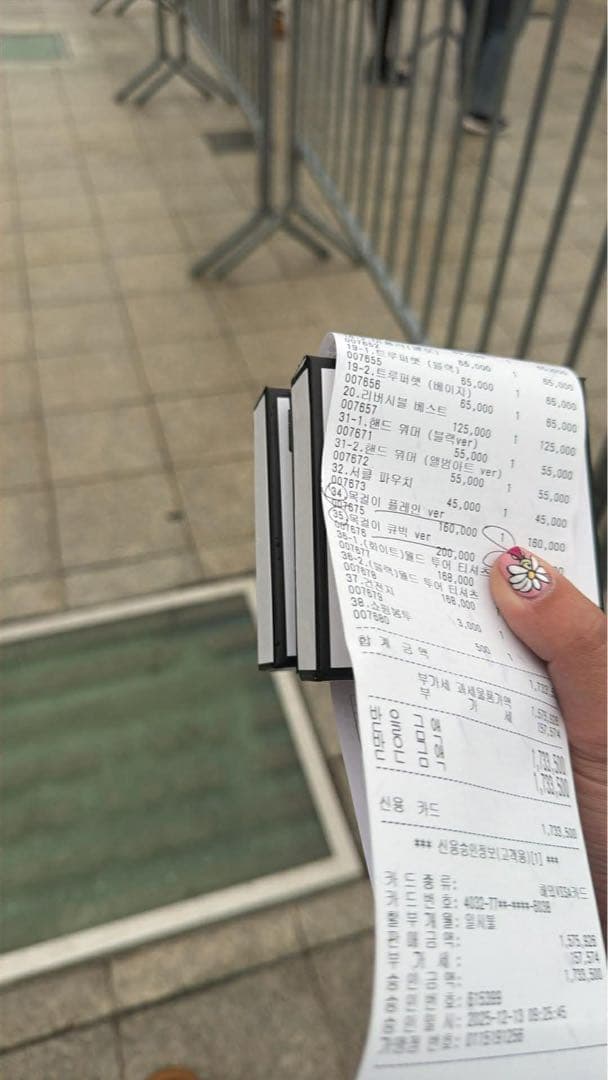 007652 65,000 1 65,000
19-1.트루퍼햇 (블랙)
007655 65,000 1 65,000
19-2.트루퍼햇 (베이지)
007656 65,000 1 65,000
20.리버시블 베스트
007657 125,000 1 125,000
31-1.핸드 워머 (블랙ver)
007671 55,000 1 55,000
31-2.핸드 워머 (앨범아트 ver)
007672 55,000 1 55,000
32.서클 파우치
007673 45,000 1 45,000
34.목걸이 플레인 ver
007675 160,000 1 160,000
35.목걸이 큐빅 ver
007676 200,000
36-1.(화이트)월드 투어 티셔츠
007677 168,000
36-2.(블랙)월드 투어 티셔츠
007678 168,000
37.건전지
007679 3,000 1
38.쇼핑봉투
007680 500 1
합 계 금 액 1,733,5
부가세 과세물품가액 1,575,926
부 가 세 157,574
받 을 금 액 1,733,500
받 은 금 액 1,733,500
신용 카드 1,733,500
*** 신용승인정보(고객용)[1] ***
카 드 종 류: 해외VISA카드
카 드 번 호: 4032-77**-****-6038
할 부 개 월: 일시불
판 매 금 액: 1,575,926
부 가 세: 157,574
승 인 금 액: 1,733,500
승 인 번 호: 615399
승 인 일 시: 2025-12-13 09:25:45
가맹점 번호: 0115191256